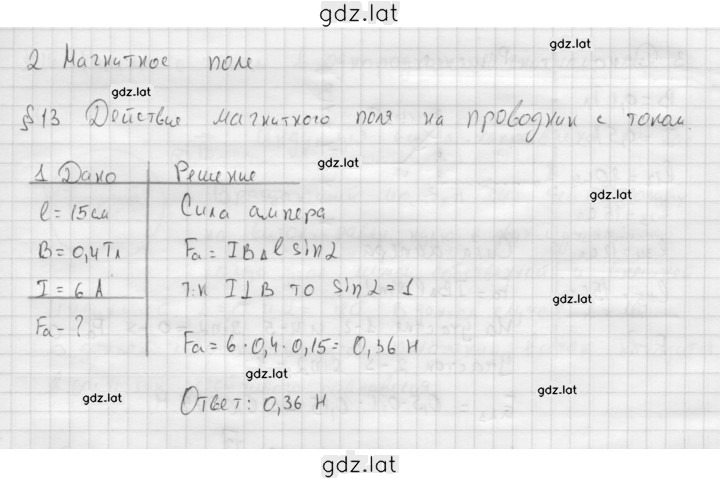 gdz.lat
2 Магнитное поле
gdz.lat
gdz.lat
§ 13 Действие магнитного поля на проводник с током.
gdz.lat
1 Дано
Решение
gdz.lat
l = 15 см
Сила ампера
B = 0,4 Тл
Fa = I B Δ l sin 2
I = 6 А
т.к I ⊥ B то sin 2 = 1
gdz.lat
Fa - ?
Fa = 6 · 0,4 · 0,15 = 0,36 Н
gdz.lat
gdz.lat
gdz.lat
Ответ: 0,36 Н
gdz.lat